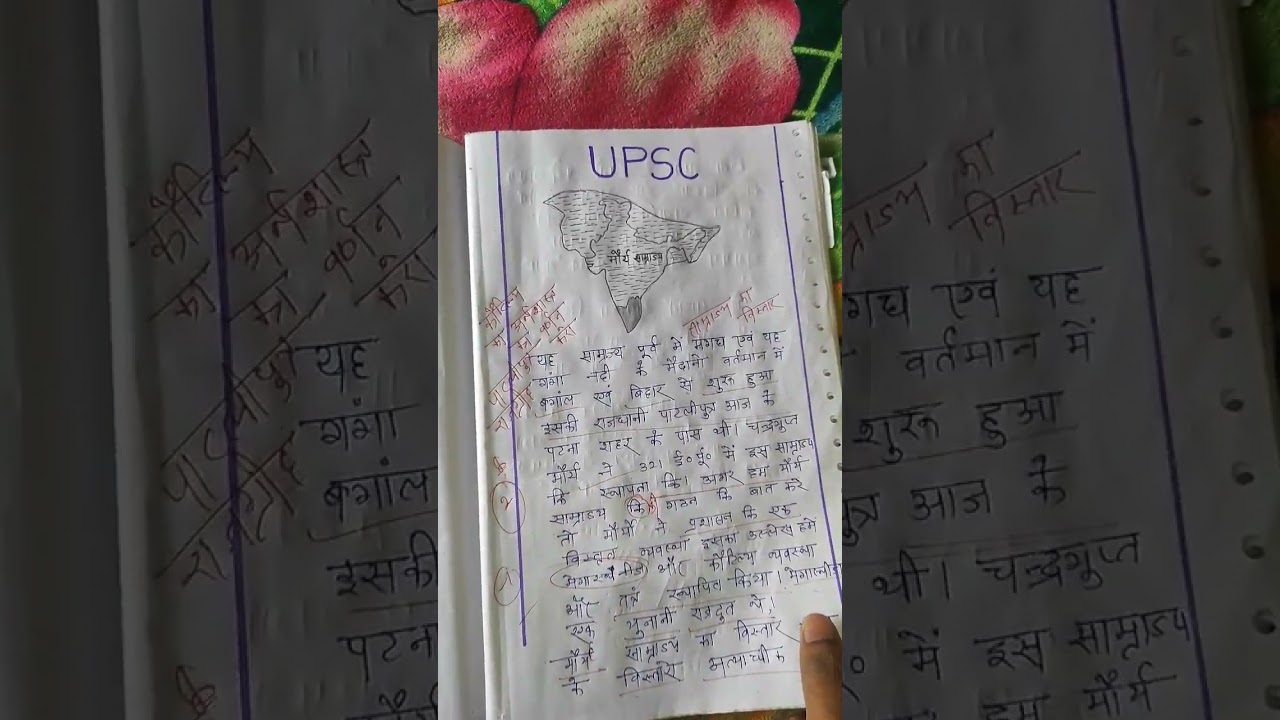 UPSC
मौर्य साम्राज्य
कौटिल्य
का अर्थशास्त्र
का वर्णन
करो
साम्राज्य का
विस्तार
यह सामाज्य पूर्व में मगध एवं यह
गंगा नदी के मैदानों वर्तमान में
बगांल एवं बिहार से शुरू हुआ
इसकी राजधानी पाटलीपुत्र आज के
पटना शहर के पास थी। चन्द्रगुप्त
मौर्य ने 321 ई०पू० में इस साम्राज्य
कि स्थापना कि। अगर हम मौर्य
साम्राज्य कि गठन कि बात करे
तो मौर्यो ने प्रशासन कि एक
विस्तृत व्यवस्था इसका उल्लेख हमें
और कौटिल्य व्यवस्था
और तंत्र स्थापित किया।
एक युनानी राजदूत थे।
मौर्य साम्राज्य का विस्तार
के विस्तार